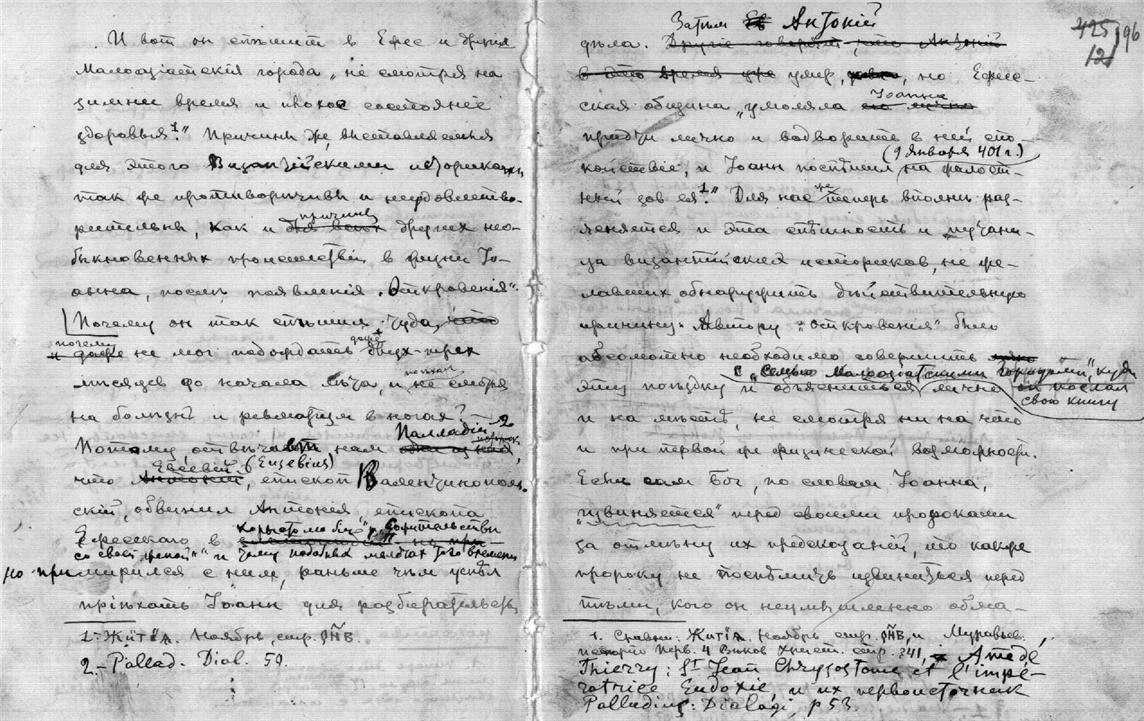 И вот он спѣшит в Ефес и другия
Малоазiатскiя города „не смотря на
зимнее время и плохое состоянiе
здоровья¹." Причины же, выставляемыя
для этого Византiйскими историками
так же противорѣчивы и неудовлетво-
рительны, как и причины других нео-
быкновенных происшествiй в жизни Iо-
анна, послѣ появления „Откровенiя".
Почему он так спѣшил туда,
почему не мог подождать даже двух-трех
мѣсяцев до начала лѣта, и поехал не смотря
на болѣзнь и ревматизм в ногах?
Потому отвѣчает нам Палладiй²,
что Евсевiй (Eusebius), епископ Валентинополь-
скiй, обвинил Антонiя епископа
Ефесскаго в „корыстолюбiи", „сожительстве
со своей женой" и тому подобных мелочах того времени
но примирился с ним, раньше чѣм успѣл
прiѣхать Iоанн для разбирательства
1.- Житiя. Ноябрь, стр. ФН҃В.
2.- Pallad. Dial. 50.
425/96
12
Затѣм Антонiй
дѣла. Другiе говорят, что Антонiй
в это время уже умер, но Ефес-
ская община „умоляла Iоанна
придти лично и водворить в ней спо-
койствiе, и Iоанн поспѣшил (9 Января 401 г.) на жалост-
ный зов ея¹." Для нас же теперь вполнѣ раз-
ясняется и эта спѣшность и путани-
ца византiйских историков, не же-
лавших обнаружить дѣйствительную
причину: Автору „Откровенiя" было
абсолютно необходимо совершить
эту поѣздку и объясниться с „семью Малоазiатскими городами", куда
он послал свою книгу
лично
и на мѣстѣ, не смотря ни на что
и при первой же физической возможности.
Если сам Бог, по словам Iоанна,
„извиняется" перед своими пророками
за отмѣну их предсказанiй, то как же
пророку не поспѣшить извиниться перед
тѣми, кого он неумышленно обма-
1. Сравни: Житiя. Ноябрь стр. ФН҃В, и Муравьев.
Исторiя Перв. 4 Вѣков Христ. стр. 241, Amedé
Thierry: St Jean Chrysostome et l'impé-
ratrice Eudoxie, и их первоисточник
Palladius: Dialogi, p 53.